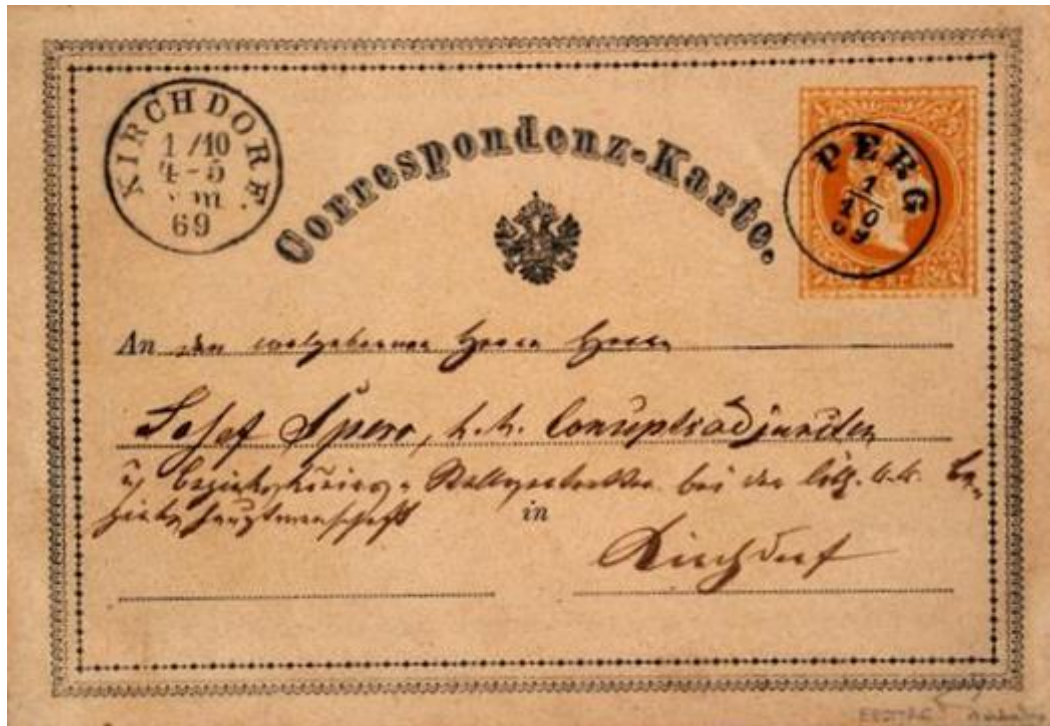 KIRCHDORF.
1/10
4-5
69
Correspondenz-Karte.
PERG
1
10
69
An den wolgebornen Herrn Herrn
Josef Spero, k. k. Conceptsadjuncten
bei der löbl. k. k. Be-
zirkshauptmannschaft
in
Kirchdorf